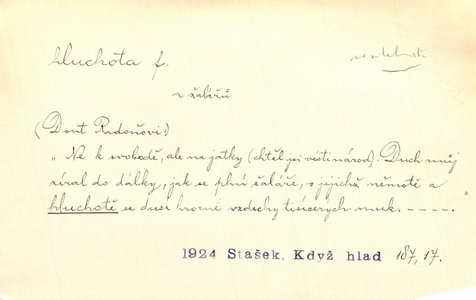 hluchota f.
v žalářů
(Dont Radoňovi:)
"Ne k svobodě, ale na jatky (chtěl jsi vésti národ). Duch můj
zíral do dálky, jak se plní žaláře, v jejichž němotě a
hluchotě se dusí hrozné vzdechy tisícerých muk. - - - - - "
1924 Stašek, Když hlad 187, 17.